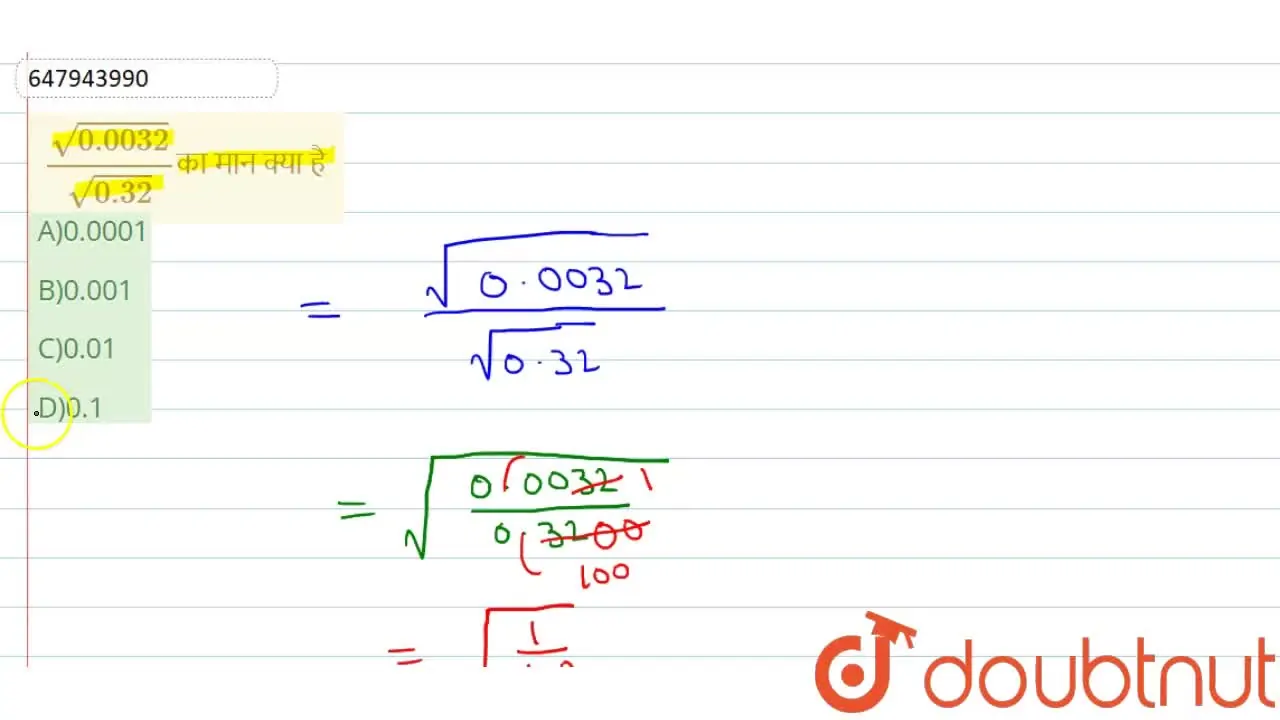 647943990
√0.0032
√0.32
का मान क्या है
A)0.0001
B)0.001
C)0.01
D)0.1
= √0.0032
√0.32
= √0.0032 1
0.3200
100
= √1
doubtnut